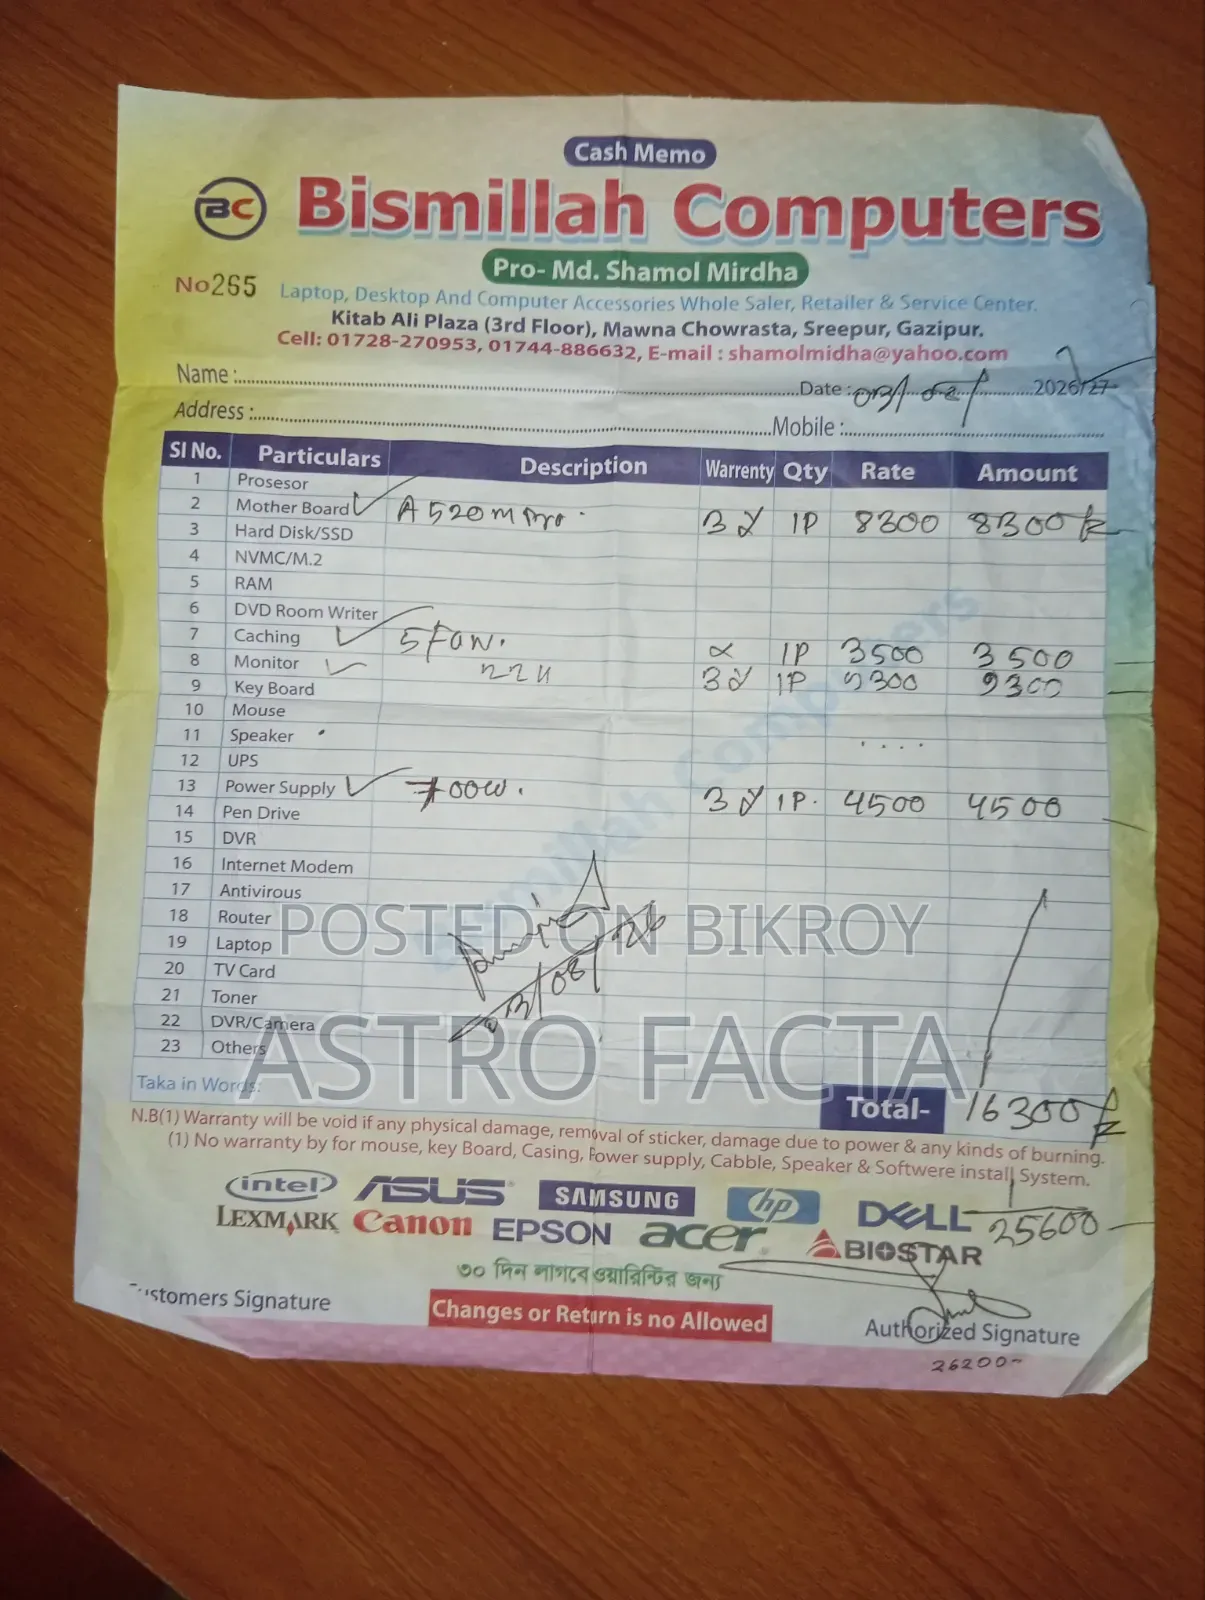 Cash Memo
BC
Bismillah Computers
Pro- Md. Shamol Mirdha
No 265
Laptop, Desktop And Computer Accessories Whole Saler, Retailer & Service Center.
Kitab Ali Plaza (3rd Floor), Mawna Chowrasta, Sreepur, Gazipur.
Cell: 01728-270953, 01744-886632, E-mail : shamolmidha@yahoo.com
Name : Date : 2026/27
Address : Mobile :
Sl No. Particulars Description Warrenty Qty Rate Amount
1 Prosesor
2 Mother Board A520M Pro. 3 Y 1P 8300 8300
3 Hard Disk/SSD
4 NVMC/M.2
5 RAM
6 DVD Room Writer
7 Caching 5 Fan. 1P 3500 3500
8 Monitor 3 Y 1P 9300 9300
9 Key Board
10 Mouse
11 Speaker
12 UPS
13 Power Supply 700W. 3 Y 1P. 4500 4500
14 Pen Drive
15 DVR
16 Internet Modem
17 Antivirous
18 Router
19 Laptop
20 TV Card
21 Toner
22 DVR/Camera
23 Others
03/08/26
POSTED ON BIKROY
ASTRO FACTA
Taka in Words: Total- 16300
N.B(1) Warranty will be void if any physical damage, removal of sticker, damage due to power & any kinds of burning.
(1) No warranty by for mouse, key Board, Casing, Power supply, Cabble, Speaker & Softwere install System.
intel ASUS SAMSUNG hp DELL
25600
LEXMARK Canon EPSON acer BIOSTAR
৩০ দিন লাগবে ওয়ারিন্টির জন্য
Customers Signature Changes or Return is no Allowed Authorized Signature
26200